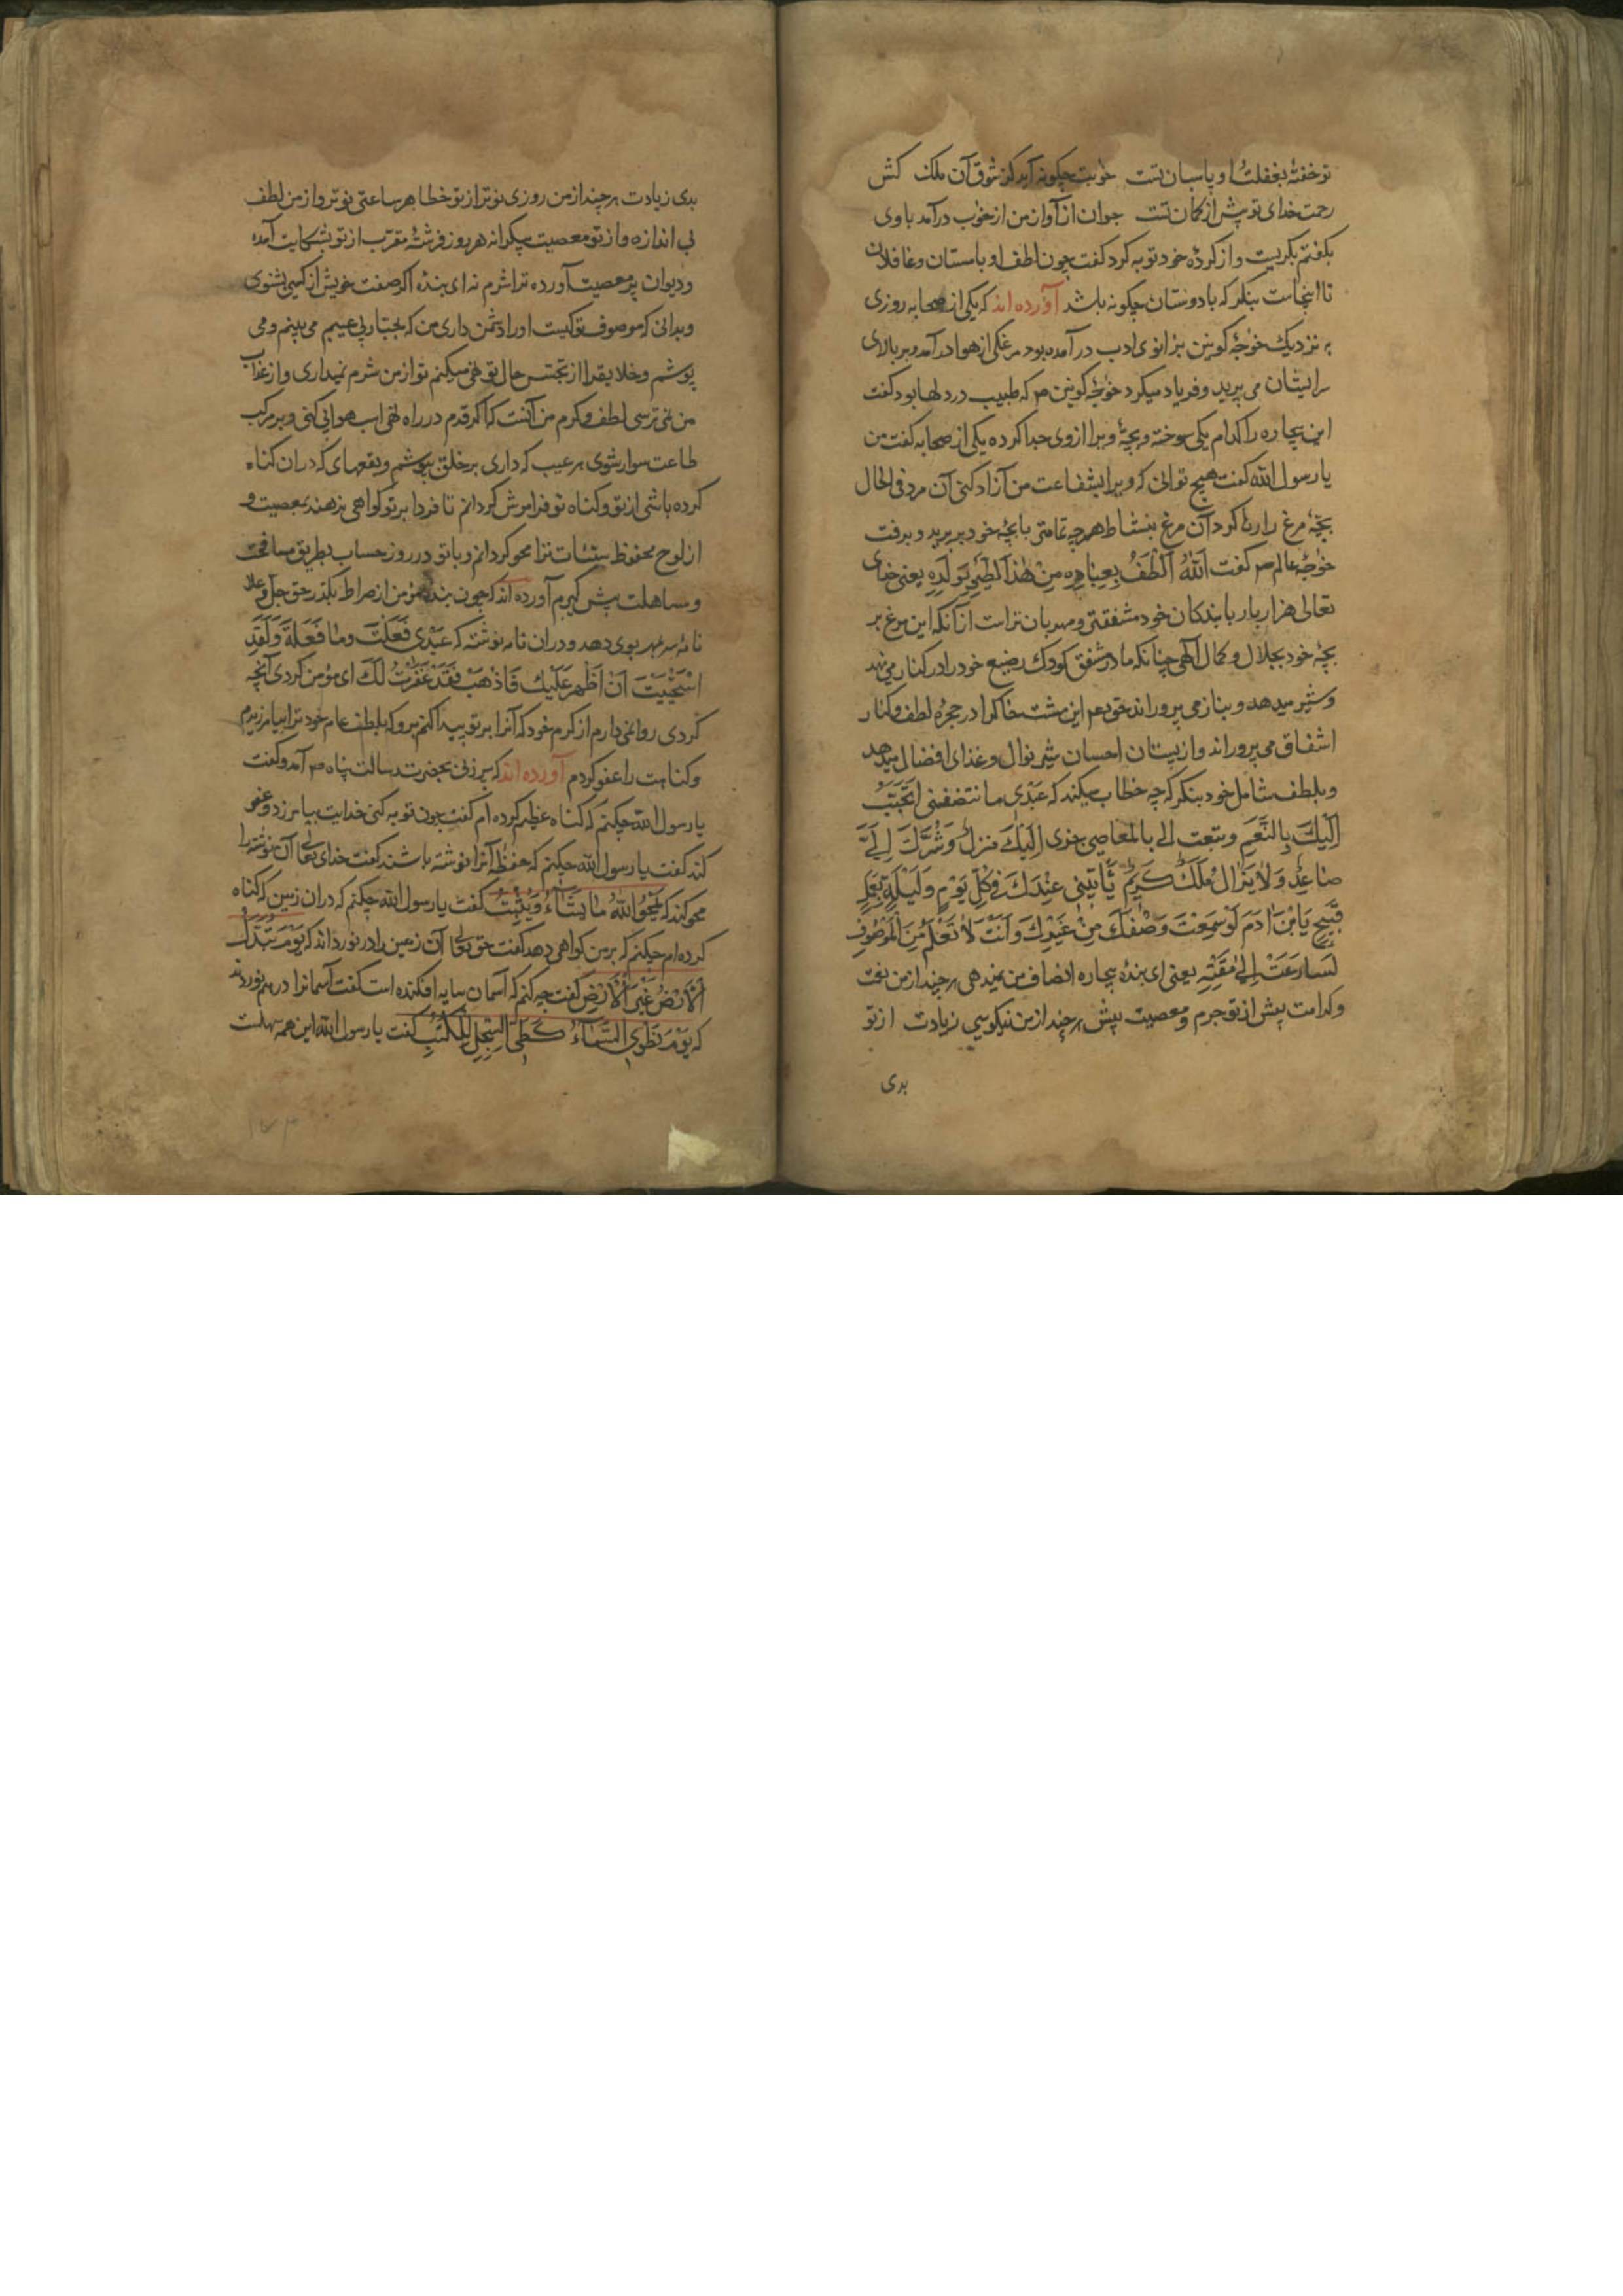 تو خفتهٔ بغفلت او پاسبان تست خوبت چکونه آید کز شوق آن ملک کش
رحمت خدای تو پیش از کمان تست جوان از آواز من از خواب در آمد باوی
بکفتم بکریست و از کردهٔ خود توبه کرد کفت چون لطف او با مستان و غافلان
تا اینجاست بنکر که با دوستان چکونه باشد آورده اند که یکی از صحابه روزی
به نزدیک خوجهٔ کونین بزانوی ادب در آمده بود مرغکی از هوا در آمد و بر بالای
سر ایشان می پرید و فریاد میکرد خوجهٔ کونین صم که طبیب دردلها بود کفت
این بیچاره را کدام یکی سوخته و بچهٔ ویرا از وی جدا کرده یکی از صحابه کفت من
یا رسول الله کفت هیچ توانی که ویرا بشفاعت من آزاد کنی آن مرد فی الحال
بچهٔ مرغ را رها کرد آن مرغ بنشاط هر چه تمامتر با بچهٔ خود بپرید و برفت
خوجهٔ عالم صم کفت اَللهُ اَلْطَفُ بِعِبٰادِهِ مِنْ هٰذَا الطَّیْرِ بِوَلَدِهِ یعنی خدای
تعالی هزار بار با بندکان خود مشفقتر و مهربان تر است از آنکه این مرغ بر
بچهٔ خود بجلال و کمال الهی چنانکه مادر مشفق کودک رضیع خود را در کنار می نهد
و شیر میدهد و بناز می پروراند حق تعم این مشت خاکرا در حجرهٔ لطف و کنار
اشفاق می پروراند و از پستان احسان شیر نوال و غذای افضال میدهد
و بلطف شامل خود بنکر که چه خطاب میکند که عَبْدی ما تنصفنی اتحَبَّبُ
اِلَیْكَ بِالنِّعَمِ وتتبغت الی بالمعاصی خیری اِلَیْكَ منزل وَشَرُّكَ اِلَیَّ
صٰاعِدٌ وَلٰا یَزٰالُ مَلَكٌ کَرِیمٌ یَأتینی عِنْدَكَ فی کُلِّ یَوْمٍ وَلَیْلَةٍ بِعَمَلٍ
قَبیحٍ یَا بْنَ اٰدَمَ لَوْ سَمِعْتَ وَصْفَكَ مِنْ غَیْرِكَ وَاَنْتَ لٰا تَعْلَمُ مَنِ الْمَوْصُوفُ
لَسٰارَعْتَ اِلٰی مَقْتِهِ یعنی ای بندهٔ بیچاره انصاف من نمیدهی هر چند از من نعمت
و کرامت بیش از تو جرم و معصیت بیش هر چند از من نیکویی زیادت از تو
بدی
بدی زیادت هر چند از من روزی نوتر از تو خطا هر ساعتی نوتر و از من لطف
بی اندازه و از تو معصیت بیکرانه هر روز فرشتهٔ مقرب از تو بشکایت آمده
و دیوان پر معصیت آورده ترا شرم نه ای بنده اکر صفت خویش از کسی بشنوی
و بدانی که موصوف تو کیست او را دشمن داری من که جبار بی عیبم می بینم و می
پوشم و خلایقرا از تجسس حال تو نهی میکنم تو از من شرم نمیداری و از عذاب
من نمی ترسی لطف و کرم من آنست که اکر قدم در راه نهی اب هوایی کنی و بر مرکب
طاعت سوار شوی هر عیب که داری بر خلق بپوشم و بقعهای که در ان کناه
کرده باشی از تو و کناه تو فراموش کردانم تا فردا بر تو کواهی ندهند بمعصیت و
از لوح محفوظ سیئات ترا محو کردانم و با تو در روز حساب بطریق مسامحت
و مساهلت پیش کیرم آورده اند که چون بندهٔ مؤمن از صراط بکذرد حق جل و علا
نامهٔ سر بمهر بوی دهد و دران نامه نوشته که عَبْدی فَعَلْتَ وَمٰا فَعَلْةَ وَلَقَدِ
اسْتَحْیَیْتُ اَنْ اَظْهَرَ عَلَیْكَ فَاذْهَبْ فَقَدْ غَفَرْتُ لَكَ ای مؤمن کردی آنچه
کردی روا نمی دارم از کرم خود که آنرا بر تو پیدا کنم برو که بلطف عام خود ترا بیامرزیدم
و کناهت را عفو کردم آورده اند که پیر زنی بحضرت رسالت پناه صم آمد و کفت
یا رسول الله چکنم که کناه عظیم کرده ام کفت چون توبه کنی خدایت بیامرزد و عفو
کند کفت یا رسول الله چکنم که حفظه آنرا نوشته باشند کفت خدای تعالی آن نوشته را
محو کند که یَمْحُوا اللهُ مٰا یَشٰاءُ وَیُثْبِتُ کفت یا رسول الله چکنم که دران زمین که کناه
کرده ام چکنم که بر من کواهی دهد کفت حق تعالی آن زمین را در نوردد اند که یَوْمَ تُبَدَّلُ
اَلْاَرْضُ غَیْرَ الْاَرْضِ کفت چه کنم که آسمان سایه افکنده است کفت آسمانرا در هم نوردند
که یَوْمَ نَطْوِی السَّمٰاءَ کَطَیِّ السِّجِلِّ لِلْکُتُبِ کفت یا رسول الله این همه سهلست